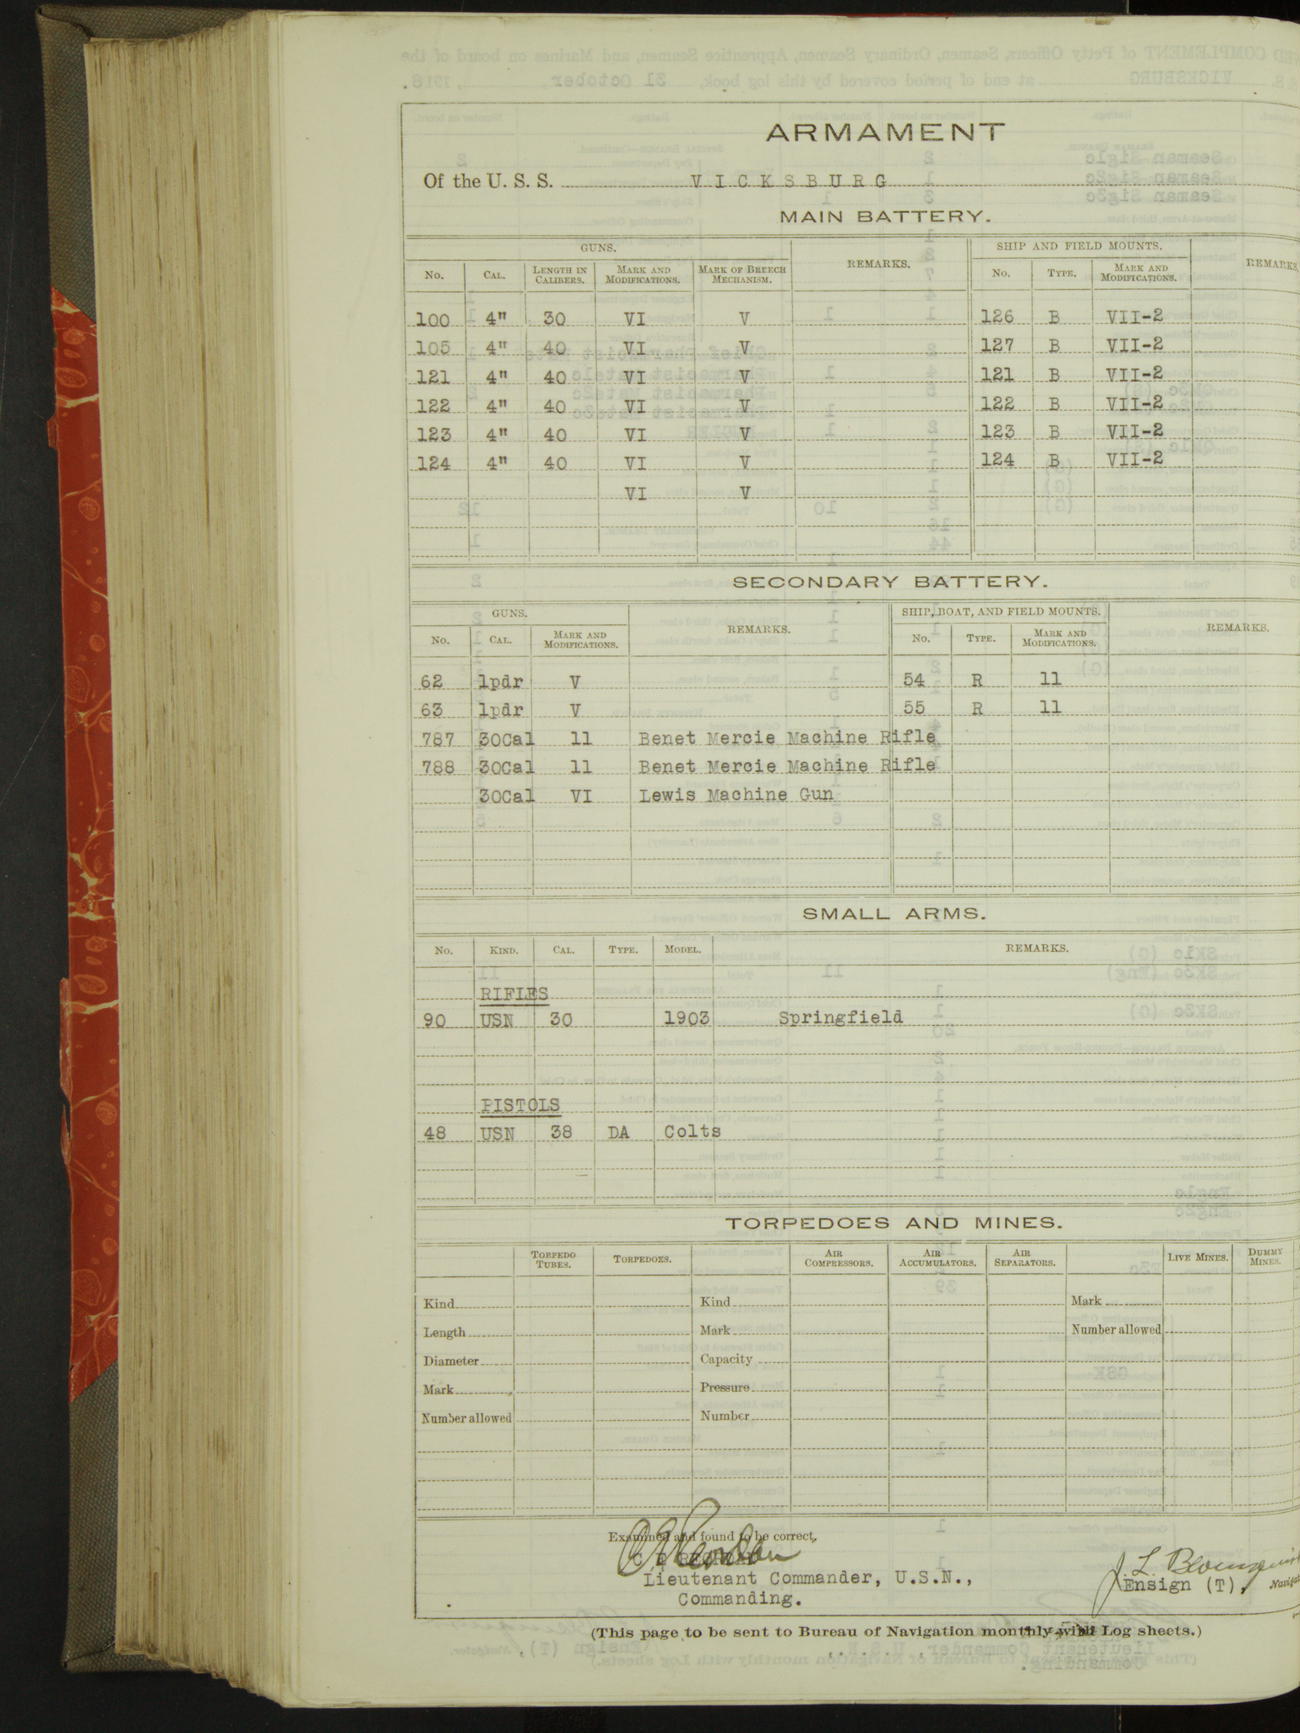 ARMAMENT
Of the U. S. S. VICKSBURG
MAIN BATTERY.
GUNS. SHIP AND FIELD MOUNTS.
No. CAL. LENGTH IN CALIBERS. MARK AND MODIFICATIONS. MARK OF BREECH MECHANISM. REMARKS. No. TYPE. MARK AND MODIFICATIONS. REMARKS.
100 4" 30 VI V 126 B VII-2
105 4" 40 VI V 127 B VII-2
121 4" 40 VI V 121 B VII-2
122 4" 40 VI V 122 B VII-2
123 4" 40 VI V 123 B VII-2
124 4" 40 VI V 124 B VII-2
VI V
SECONDARY BATTERY.
GUNS. SHIP, BOAT, AND FIELD MOUNTS.
No. CAL. MARK AND MODIFICATIONS. REMARKS. No. TYPE. MARK AND MODIFICATIONS. REMARKS.
62 1pdr V 54 R 11
63 1pdr V 55 R 11
787 30Cal 11 Benet Mercie Machine Rifle
788 30Cal 11 Benet Mercie Machine Rifle
30Cal VI Lewis Machine Gun
SMALL ARMS.
No. KIND. CAL. TYPE. MODEL. REMARKS.
RIFLES
90 USN 30 1903 Springfield
PISTOLS
48 USN 38 DA Colts
TORPEDOES AND MINES.
TORPEDO TUBES. TORPEDOES. AIR COMPRESSORS. AIR ACCUMULATORS. AIR SEPARATORS. LIVE MINES. DUMMY MINES.
Kind Kind Mark
Length Mark Number allowed
Diameter Capacity
Mark Pressure
Number allowed Number
Examined and found to be correct,
Lieutenant Commander, U.S.N.,
Ensign (T),
Commanding.
(This page to be sent to Bureau of Navigation monthly with Log sheets.)